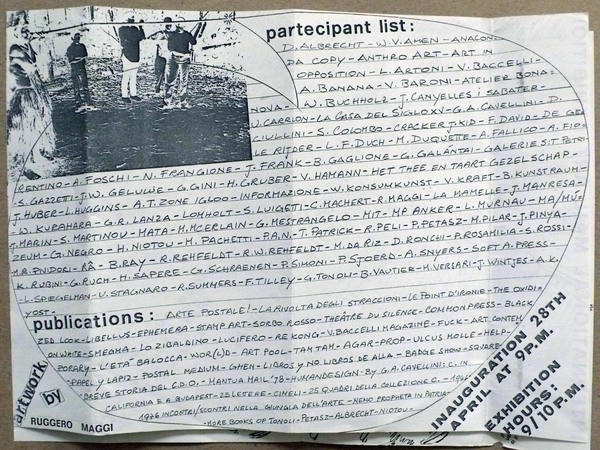 partecipant list:
D. ALBRECHT - W.V. AMEN - ANACON
DA COPY - ANTHRO ART - ART IN
OPPOSITION - L. ARTONI - V. BACCELLI -
A. BANANA - V. BARONI - ATELIER BONA=
NOVA - W. BUCHHOLZ - J. CANYELLES i SABATER -
U. CARRION - LA CASA DEL SIGLO XV - G.A. CAVELLINI - D.
CIULLINI - S. COLOMBO - CRACKERJ. KID - F. DAVID - DE GE
LE RIJDER - L.F. DUCH - M. DUQUETTE - A. FALLICO - A. FIO=
RENTINO - A. FOSCHI - N. FRANGIONE - J. FRANK - B. GAGLIONE - G. GALANTAI - GALERIE S:T PETRI
S. GAZZETTI - J.W. GELUWE - G. GINI - H. GRUBER - V. HAMANN - HET THEE EN TAART GEZELSCHAP -
J. HUBER - L. HUGGINS - A.T. ZONE IGLOO - INFORMAZIONE - W. KONSUMKUNST - V. KRAFT - B. KUNSTRAUM -
W. KURAHARA - G.R. LANZA - LOMHOLT - S. LUIGETTI - C. MACHERT - R. MAGGI - LA MAMELLE - J. MANRESA -
J. MARIN - S. MARTINOU - MATA - M. McERLAIN - G. MESTRANGELO - MIT - MP ANKER - L. MURNAU - MA/MÚ
ZEUM - G. NEGRO - H. NIOTOU - M. PACHETTI - P.A.N. - T. PATRICK - R. PELI - P. PETASZ - M. PILAR - J. PINYA -
M.R. PNIDORI - RÂ - B. RAY - R. REHFELDT - R.W. REHFELDT - M. DA RIZ - D. RONCHI - P. ROSAMILIA - S. ROSSI -
K. RUBINI - G. RUCH - H. SAPERE - G. SCHRAENEN - P. SIMONI - P. SJOERD - A. SNYERS - SOFT A. PRESS -
- L. SPIEGELMAN - U. STAGNARO - R. SUMMERS - F. TILLEY - G. TONOLI - B. VAUTIER - M. VERSARI - J. WINTJES - A.K.
YOST -
publications: ARTE POSTALE! - LA RIVOLTA DEGLI STRACCIONI - LE POINT D'IRONIE - THE OXIDI=
ZED LOOK - LIBELLUS - EPHEMERA - STAMP ART - SORBO ROSSO - THÉÂTRE DU SILENCE - COMMON PRESS - BLACK
ON WHITE - SMEGMA - LO ZIBALDINO - LUCIFERO - RE KONG - V. BACCELLI MAGAZINE - FUCK - ART CONTEM
PORARY - L'ETÀ BALOCCA - WOR(L)D - ART POOL - TAM TAM - AGAR - PROP - ULCUS MOLLE - HELP -
PAPEL Y LAPIZ - POSTAL MEDIUM - GHEN - LIBROS Y NO LIBROS DE ALLA - BADGE SHOW - SQUARE
BREVE STORIA DEL C.D.O. - MANTUA MAIL '78 - HUMANDESIGN - BY G.A. CAVELLINI: C. IN
CALIFORNIA E A BUDAPEST - 25 LETTERE - CIMELI - 25 QUADRI DELLA COLLEZIONE C. -
1976 INCONTRI/SCONTRI NELLA GIUNGLA DELL'ARTE - NEMO PROPHETA IN PATRIA -
- MORE BOOKS OF TONOLI - PETASZ - ALBRECHT - NIOTOU -
artwork
by
RUGGERO MAGGI
INAUGURATION 28TH
APRIL AT 9 P.M.
EXHIBITION
HOURS:
9/10 P.M.